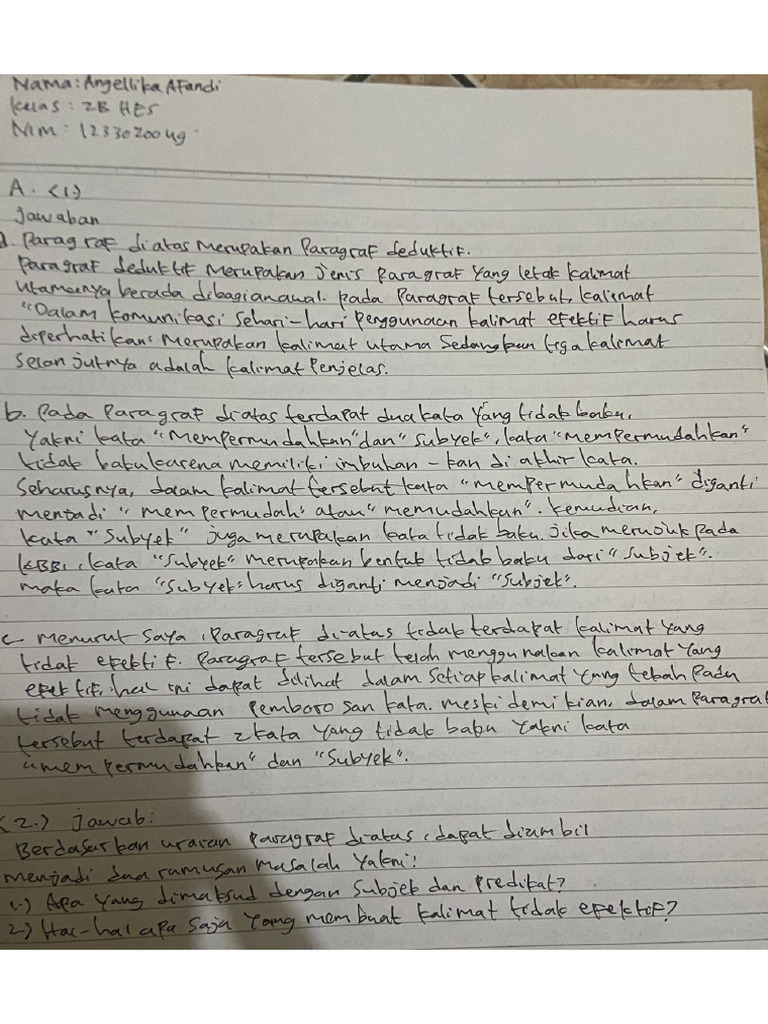 Nama: Angellika Afandi
Kelas: 2B HES
Nim: 1233020049
A. <1.)
Jawaban
a. Paragraf diatas merupakan Paragraf deduktif.
Paragraf deduktif merupakan jenis paragraf yang letak kalimat
utamanya berada dibagian awal. pada Paragraf tersebut, kalimat
"Dalam komunikasi sehari-hari penggunaan kalimat efektif harus
diperhatikan" merupakan kalimat utama sedangkan tiga kalimat
selanjutnya adalah kalimat penjelas.
b. Pada Paragraf diatas terdapat dua kata yang tidak baku,
Yakni kata "mempermudahkan" dan "subyek", kata "mempermudahkan"
tidak baku karena memiliki imbuhan -kan di akhir kata.
Seharusnya, dalam kalimat tersebut kata "mempermudahkan" diganti
menjadi "mempermudah" atau "memudahkan". kemudian,
kata "Subyek" juga merupakan kata tidak baku. jika merujuk pada
KBBI, kata "Subyek" merupakan bentuk tidak baku dari "Subjek".
maka kata "Subyek" harus diganti menjadi "Subjek".
c. menurut saya, Paragraf diatas tidak terdapat kalimat yang
tidak efektif. Paragraf tersebut telah menggunakan kalimat yang
efektif. hal ini dapat dilihat dalam setiap kalimat yang padu
tidak menggunaan pemborosan kata. meski demikian, dalam Paragraf
tersebut terdapat 2 kata yang tidak baku yakni kata
"mempermudahkan" dan "Subyek".
<2.) jawab:
Berdasarkan uraian paragraf diatas, dapat diambil
menjadi dua rumusan masalah yakni:
1.) Apa yang dimaksud dengan Subjek dan Predikat?
2.) Hal-hal apa saja yang membuat kalimat tidak efektif?